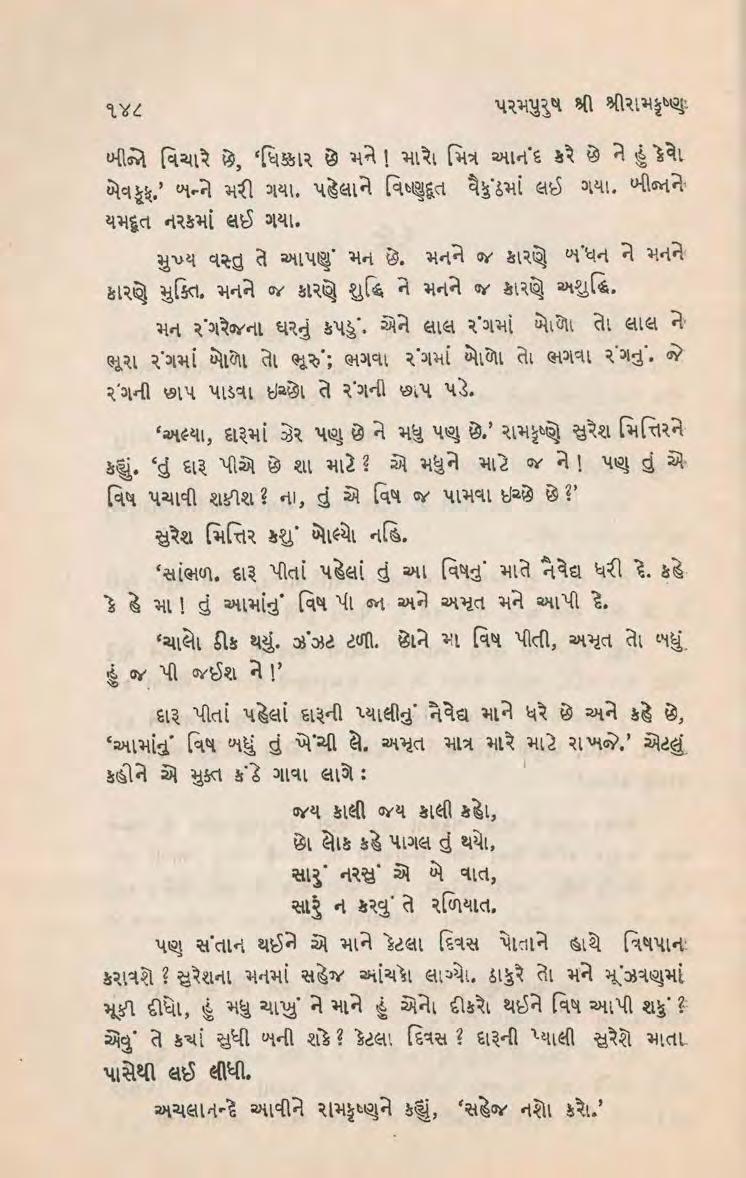 ૧૪૮ પરમપુરુષ શ્રી શ્રીરામકૃષ્ણ
બીજો વિચારે છે, ‘ધિક્કાર છે મને! મારો મિત્ર આનંદ કરે છે ને હું કેવો
બેવકૂફ.’ બન્ને મરી ગયા. પહેલાને વિષ્ણુદૂત વૈકુંઠમાં લઈ ગયા. બીજાને
યમદૂત નરકમાં લઈ ગયા.
મુખ્ય વસ્તુ તે આપણું મન છે. મનને જ કારણે બંધન ને મનને
કારણે મુક્તિ. મનને જ કારણે શુદ્ધિ ને મનને જ કારણે અશુદ્ધિ.
મન રંગરેજના ઘરનું કપડું. એને લાલ રંગમાં બોળો તો લાલ ને
ભૂરા રંગમાં બોળો તો ભૂરું; ભગવા રંગમાં બોળો તો ભગવા રંગનું. જે
રંગની છાપ પાડવા ઇચ્છો તે રંગની છાપ પડે.
‘અલ્યા, દારૂમાં ઝેર પણ છે ને મધુ પણ છે.’ રામકૃષ્ણે સુરેશ મિત્તિરને
કહ્યું. ‘તું દારૂ પીએ છે શા માટે? એ મધુને માટે જ ને! પણ તું એ
વિષ પચાવી શકીશ? ના, તું એ વિષ જ પામવા ઇચ્છે છે?’
સુરેશ મિત્તિર કશું બોલ્યો નહિ.
‘સાંભળ. દારૂ પીતાં પહેલાં તું આ વિષનું માતે નૈવેદ્ય ધરી દે. કહે
કે હે મા! તું આમાંનું વિષ પી જા અને અમૃત મને આપી દે.
‘ચાલો ઠીક થયું. ઝંઝટ ટળી. છોને મા વિષ પીતી, અમૃત તો બધું
હું જ પી જઈશ ને!’
દારૂ પીતાં પહેલાં દારૂની પ્યાલીનું નૈવેદ્ય માને ધરે છે અને કહે છે,
‘આમાંનું વિષ બધું તું ખેંચી લે. અમૃત માત્ર મારે માટે રાખજે.’ એટલું
કહીને એ મુક્ત કંઠે ગાવા લાગે :
જય કાલી જય કાલી કહો,
છો લોક કહે પાગલ તું થયો,
સારું નરસું એ બે વાત,
સારું ન કરવું તે રળિયાત.
પણ સંતાન થઈને એ માને કેટલા દિવસ પોતાને હાથે વિષપાન
કરાવશે? સુરેશના મનમાં સહેજ આંચકો લાગ્યો. ઠાકુરે તો મને મૂંઝવણમાં
મૂકી દીધો, હું મધુ ચાખું ને માને હું એનો દીકરો થઈને વિષ આપી શકું?
એવું તે ક્યાં સુધી બની શકે? કેટલા દિવસ? દારૂની પ્યાલી સુરેશે માતા
પાસેથી લઈ લીધી.
અચલાનન્દે આવીને રામકૃષ્ણને કહ્યું, ‘સહેજ નશો કરો.’